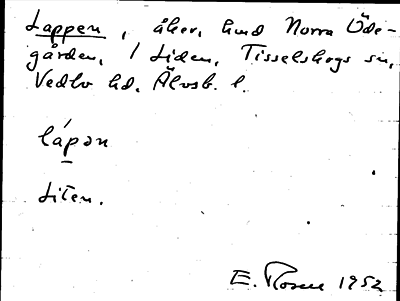 Lappen, åker, hmd Norra Öde-
gården, 1 Liden, Tisselskogs sn,
Vedbo hd, Älvsb. l.
lápən
Liten.
E. Rosen 1952